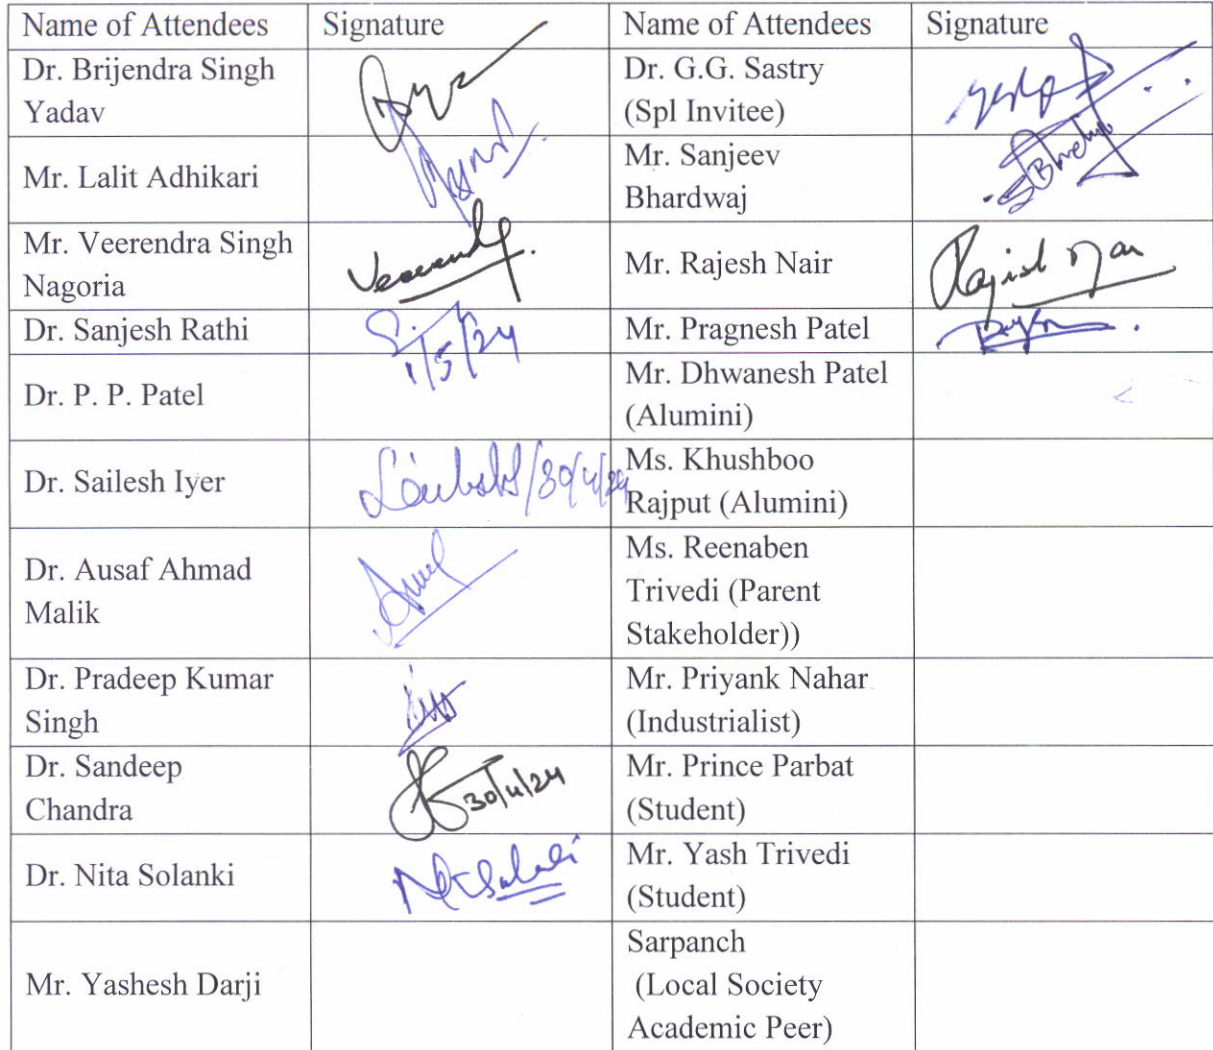 Name of Attendees Signature Name of Attendees Signature
Dr. Brijendra Singh
Yadav
Dr. G.G. Sastry
(Spl Invitee)
Mr. Lalit Adhikari
Mr. Sanjeev
Bhardwaj
Mr. Veerendra Singh
Nagoria
Mr. Rajesh Nair
Dr. Sanjesh Rathi
1/5/24
Mr. Pragnesh Patel
Dr. P. P. Patel
Mr. Dhwanesh Patel
(Alumini)
Dr. Sailesh Iyer
/30/4/24
Ms. Khushboo
Rajput (Alumini)
Dr. Ausaf Ahmad
Malik
Ms. Reenaben
Trivedi (Parent
Stakeholder))
Dr. Pradeep Kumar
Singh
Mr. Priyank Nahar
(Industrialist)
Dr. Sandeep
Chandra
30/4/24
Mr. Prince Parbat
(Student)
Dr. Nita Solanki
Mr. Yash Trivedi
(Student)
Mr. Yashesh Darji
Sarpanch
(Local Society
Academic Peer)